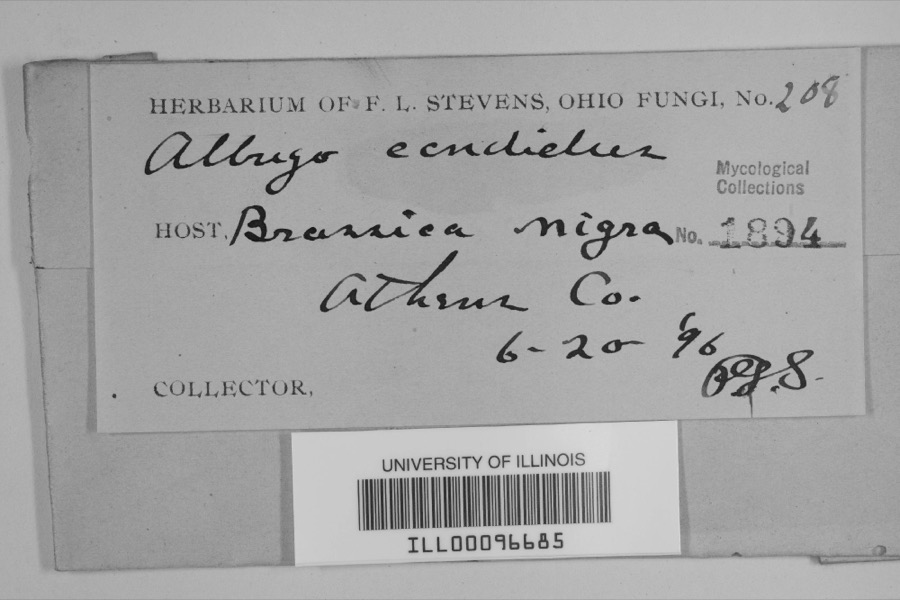 HERBARIUM OF F. L. STEVENS, OHIO FUNGI, No. 208
Albugo candidus
Mycological
Collections
HOST, Brassica nigra No. 1894
Athens Co.
6-20 '96
COLLECTOR,
UNIVERSITY OF ILLINOIS
ILL00096685